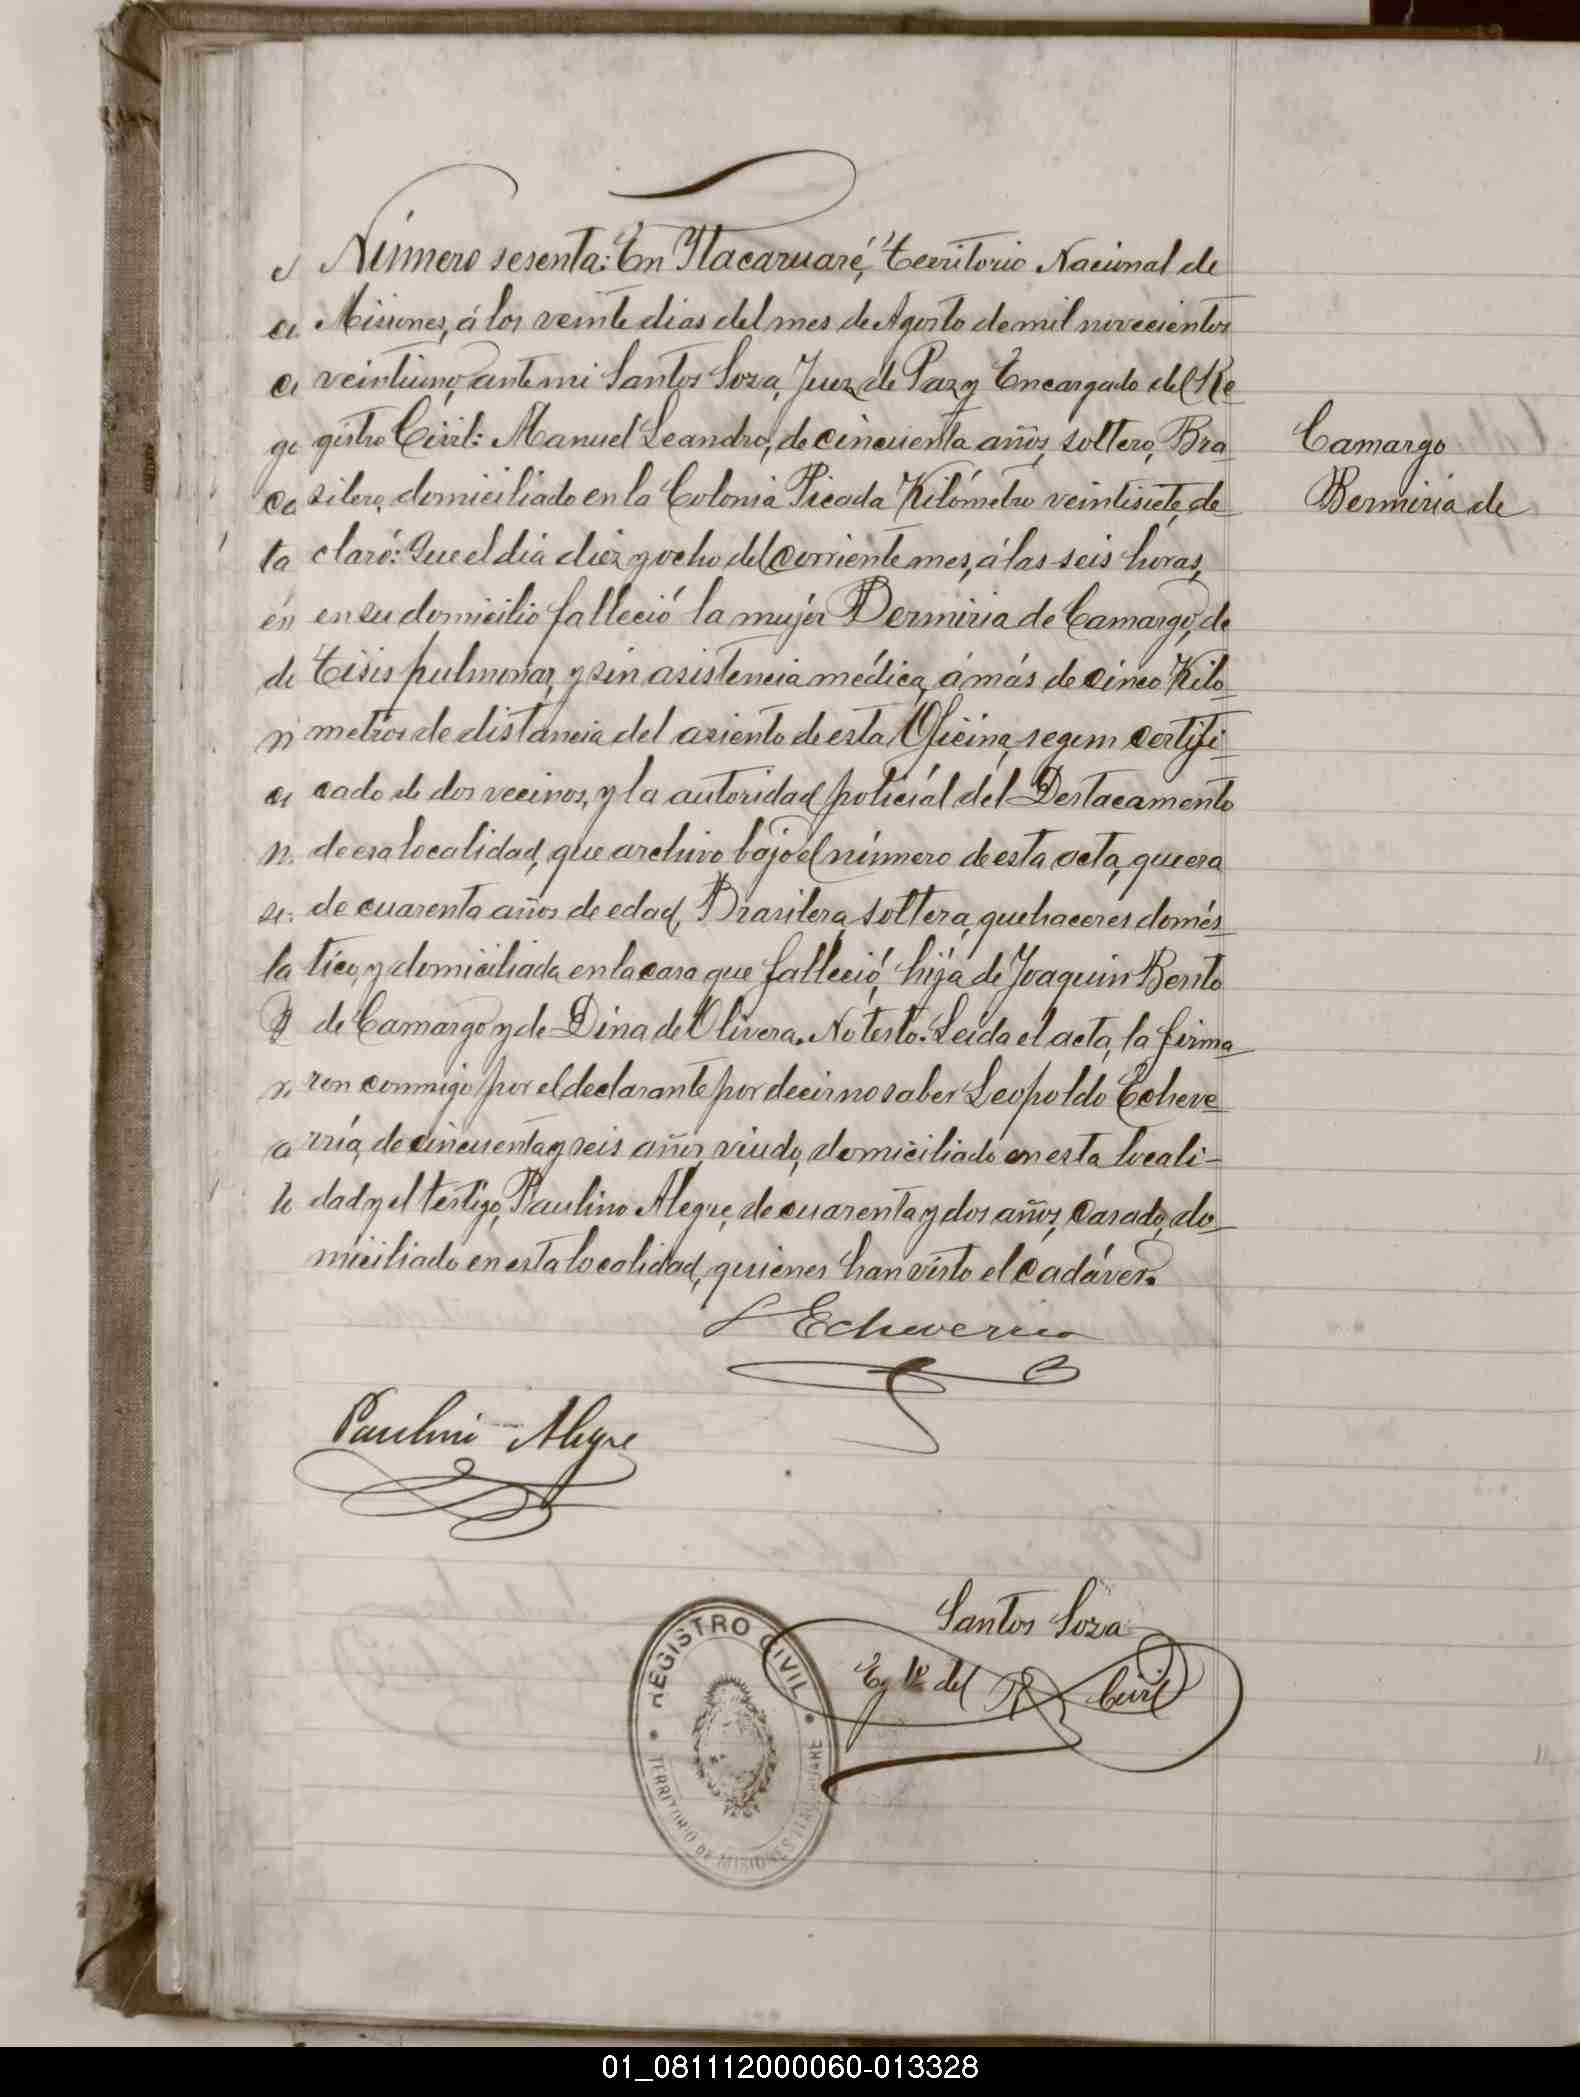 Número sesenta: En Ytacaruaré, Territorio Nacional de
Misiones, á los veinte dias del mes de Agosto de mil novecientos
veintiuno, ante mi Santos Soza, Juez de Paz y Encargado del Re
gistro Civil: Manuel Leandro, de cincuenta años, soltero, Bra
silero, domiciliado en la Colonia Picada Kilómetro veintisiete, de
claró: Que el dia diez y ocho del corriente mes, á las seis horas,
en su domicilio falleció la mujér Bermiria de Camargo, de
tisis pulmonar, y sin asistencia médica, á más de cinco Kilo
metros de distancia del asiento de esta Oficina, segun certifi
cado de dos vecinos, y la autoridad policiál del Destacamento
de esa localidad, que archivo bajo el número de esta acta, que era
de cuarenta años de edad, Brasilera, soltera, quehaceres domés
tico, y domiciliada en la casa que falleció, hija de Joaquin Bento
de Camargo y de Dina de Olivera. No testo. Leida el acta, la firma
ron conmigo por el declarante por decir no saber Leopoldo Echeve
rría, de cincuenta y seis años, viudo, domiciliado en esta locali-
dad y el testigo, Paulino Alegre, de cuarenta y dos años, casado, do
miciliado en esta localidad, quienes han visto el cadáver.
Camargo
Bermiria de
L Echeverria
Paulino Alegre
Santos Soza
del R Civil
REGISTRO CIVIL
TERRITORIO DE MISIONES
01_081112000060-013328